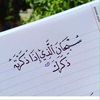 سُبْحَانَ الَّذِي إِذَا ذَكَرْتَهُ
ذَكَرَكَ